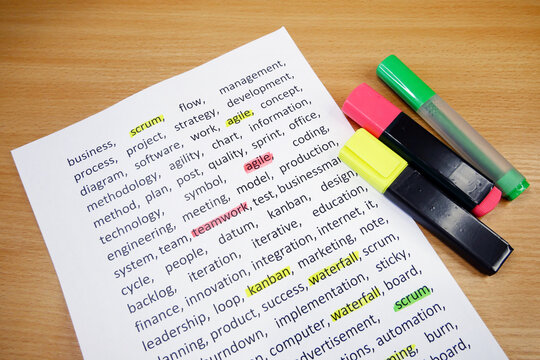 business, scrum, flow, management,
process, project, strategy, development,
diagram, software, work, agile, concept,
methodology, agility, chart, information,
method, plan, post, quality, sprint, office,
technology, symbol, agile, coding,
engineering, meeting, model, production,
system, team, teamwork, test, businessman,
cycle, people, datum, kanban, design,
backlog, iteration, iterative, education,
finance, innovation, integration, internet, it,
leadership, loop, kanban, marketing, note,
planning, product, success, waterfall, scrum,
burndown, implementation, sticky,
computer, waterfall, board,
advertisement, scrum,
automation,
burn,
board,